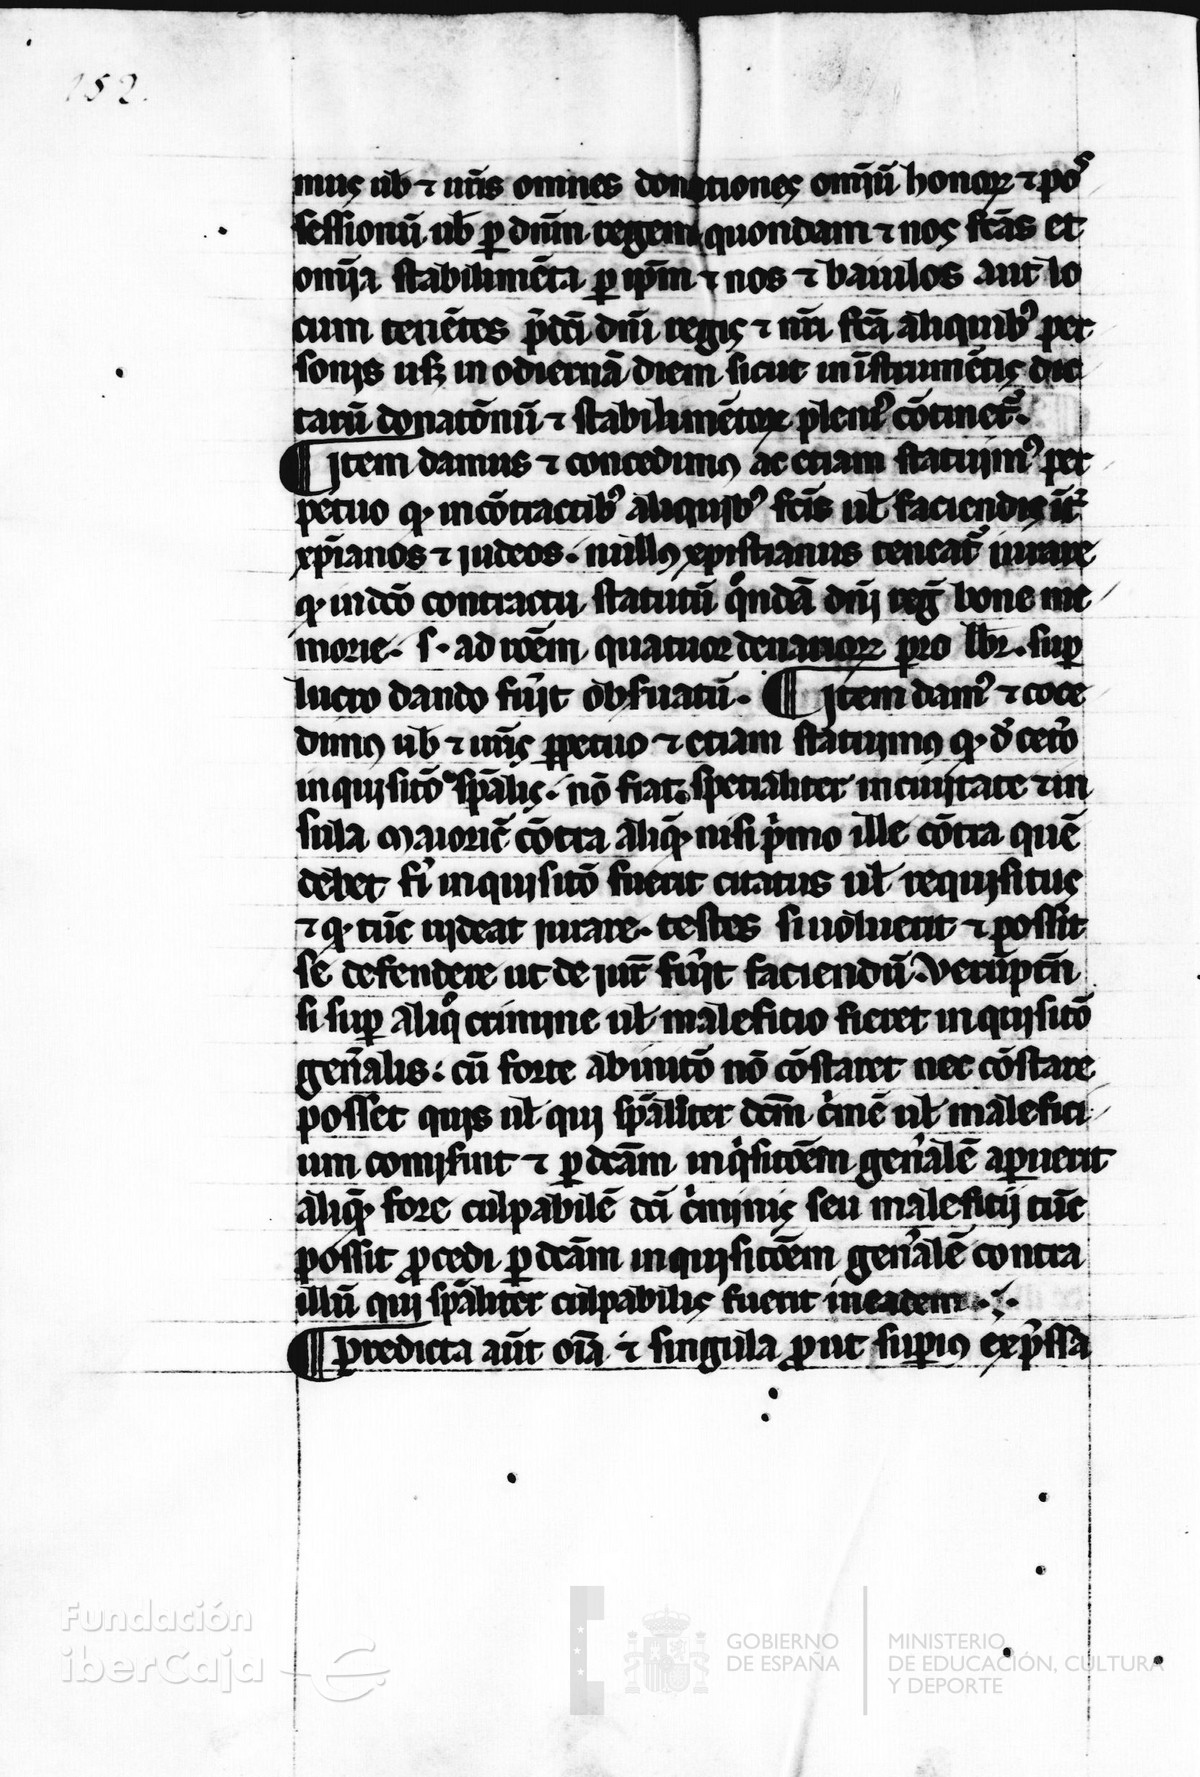 152.
mus ub ⁊ uris omnes donationes omiū honorꝝ ⁊ pos
sessionū ub ꝑ dnm̄ regem quondam ⁊ nos fcās et
omīa stabilimēta ꝑ ip̄m ⁊ nos ⁊ baiulos aut lo
cum tenētes p̄dci dnī regis ⁊ nrī fcā aliquibꝰ per
sonis usꝫ in odiernā diem sicut in īstrumētis dic
tarū donatōnū ⁊ stabilimētoꝝ pleniꝰ cōtinet᷑.
¶ Item damus ⁊ concedimꝰ ac etiam statuimꝰ per
petuo qꝫ in cōtractibꝰ aliquibꝰ fcīs ul̄ faciendis int̄
xp̄ianos ⁊ iudeos. nullꝰ xpistianus teneat᷑ iurare
qꝫ in dcō contractu statutū qͦndā dnī reḡ bone me
morie. s. ad rōem quatuor denarioꝝ pro lbr. suꝑ
lucro dando fuīt obseruatū. ¶ Item damꝰ ⁊ cōce
dimꝰ ub ⁊ uris ꝑpetuo ⁊ etiam statuimꝰ qꝫ dꝰ ceto
inquisitō spālis. nō fiat. spetialiter in ciuitate ⁊ in
sula Maioric̄ cōtra aliqꝫ nisi pⁱmo ille cōtra quē
debet fiˀ inquisitō fuerit citatus ul̄ requisitus
⁊ qꝫ tūc uideat iurare. testes si uoluerit ⁊ possit
se defendere ut de iur̄ fuīt faciendū. Verūptn̄
si suꝑ aliqͦ crimine ul̄ maleficio fieret inquisitō
genālis: cū forte ab initō nō cōstaret nec cōstare
posset quis ul̄ qui spāliter dcm̄ cⁱmē ul̄ malefici
um comiserint ⁊ ꝑ dcām inqⁱsitōem genālē apuerit
aliqꝫ fore culpabilē dcī cⁱminis seu maleficij tūc
possit ꝓcedi ꝑ dcām inquisitōem genālē contra
illū qui spāliter culpabilis fuerit in eadem.
¶ Predicta aūt oīa ⁊ singula ꝓut suꝑiꝰ exp̄ssa
Fundación
iberCaja
GOBIERNO
DE ESPAÑA
MINISTERIO
DE EDUCACIÓN, CULTURA
Y DEPORTE